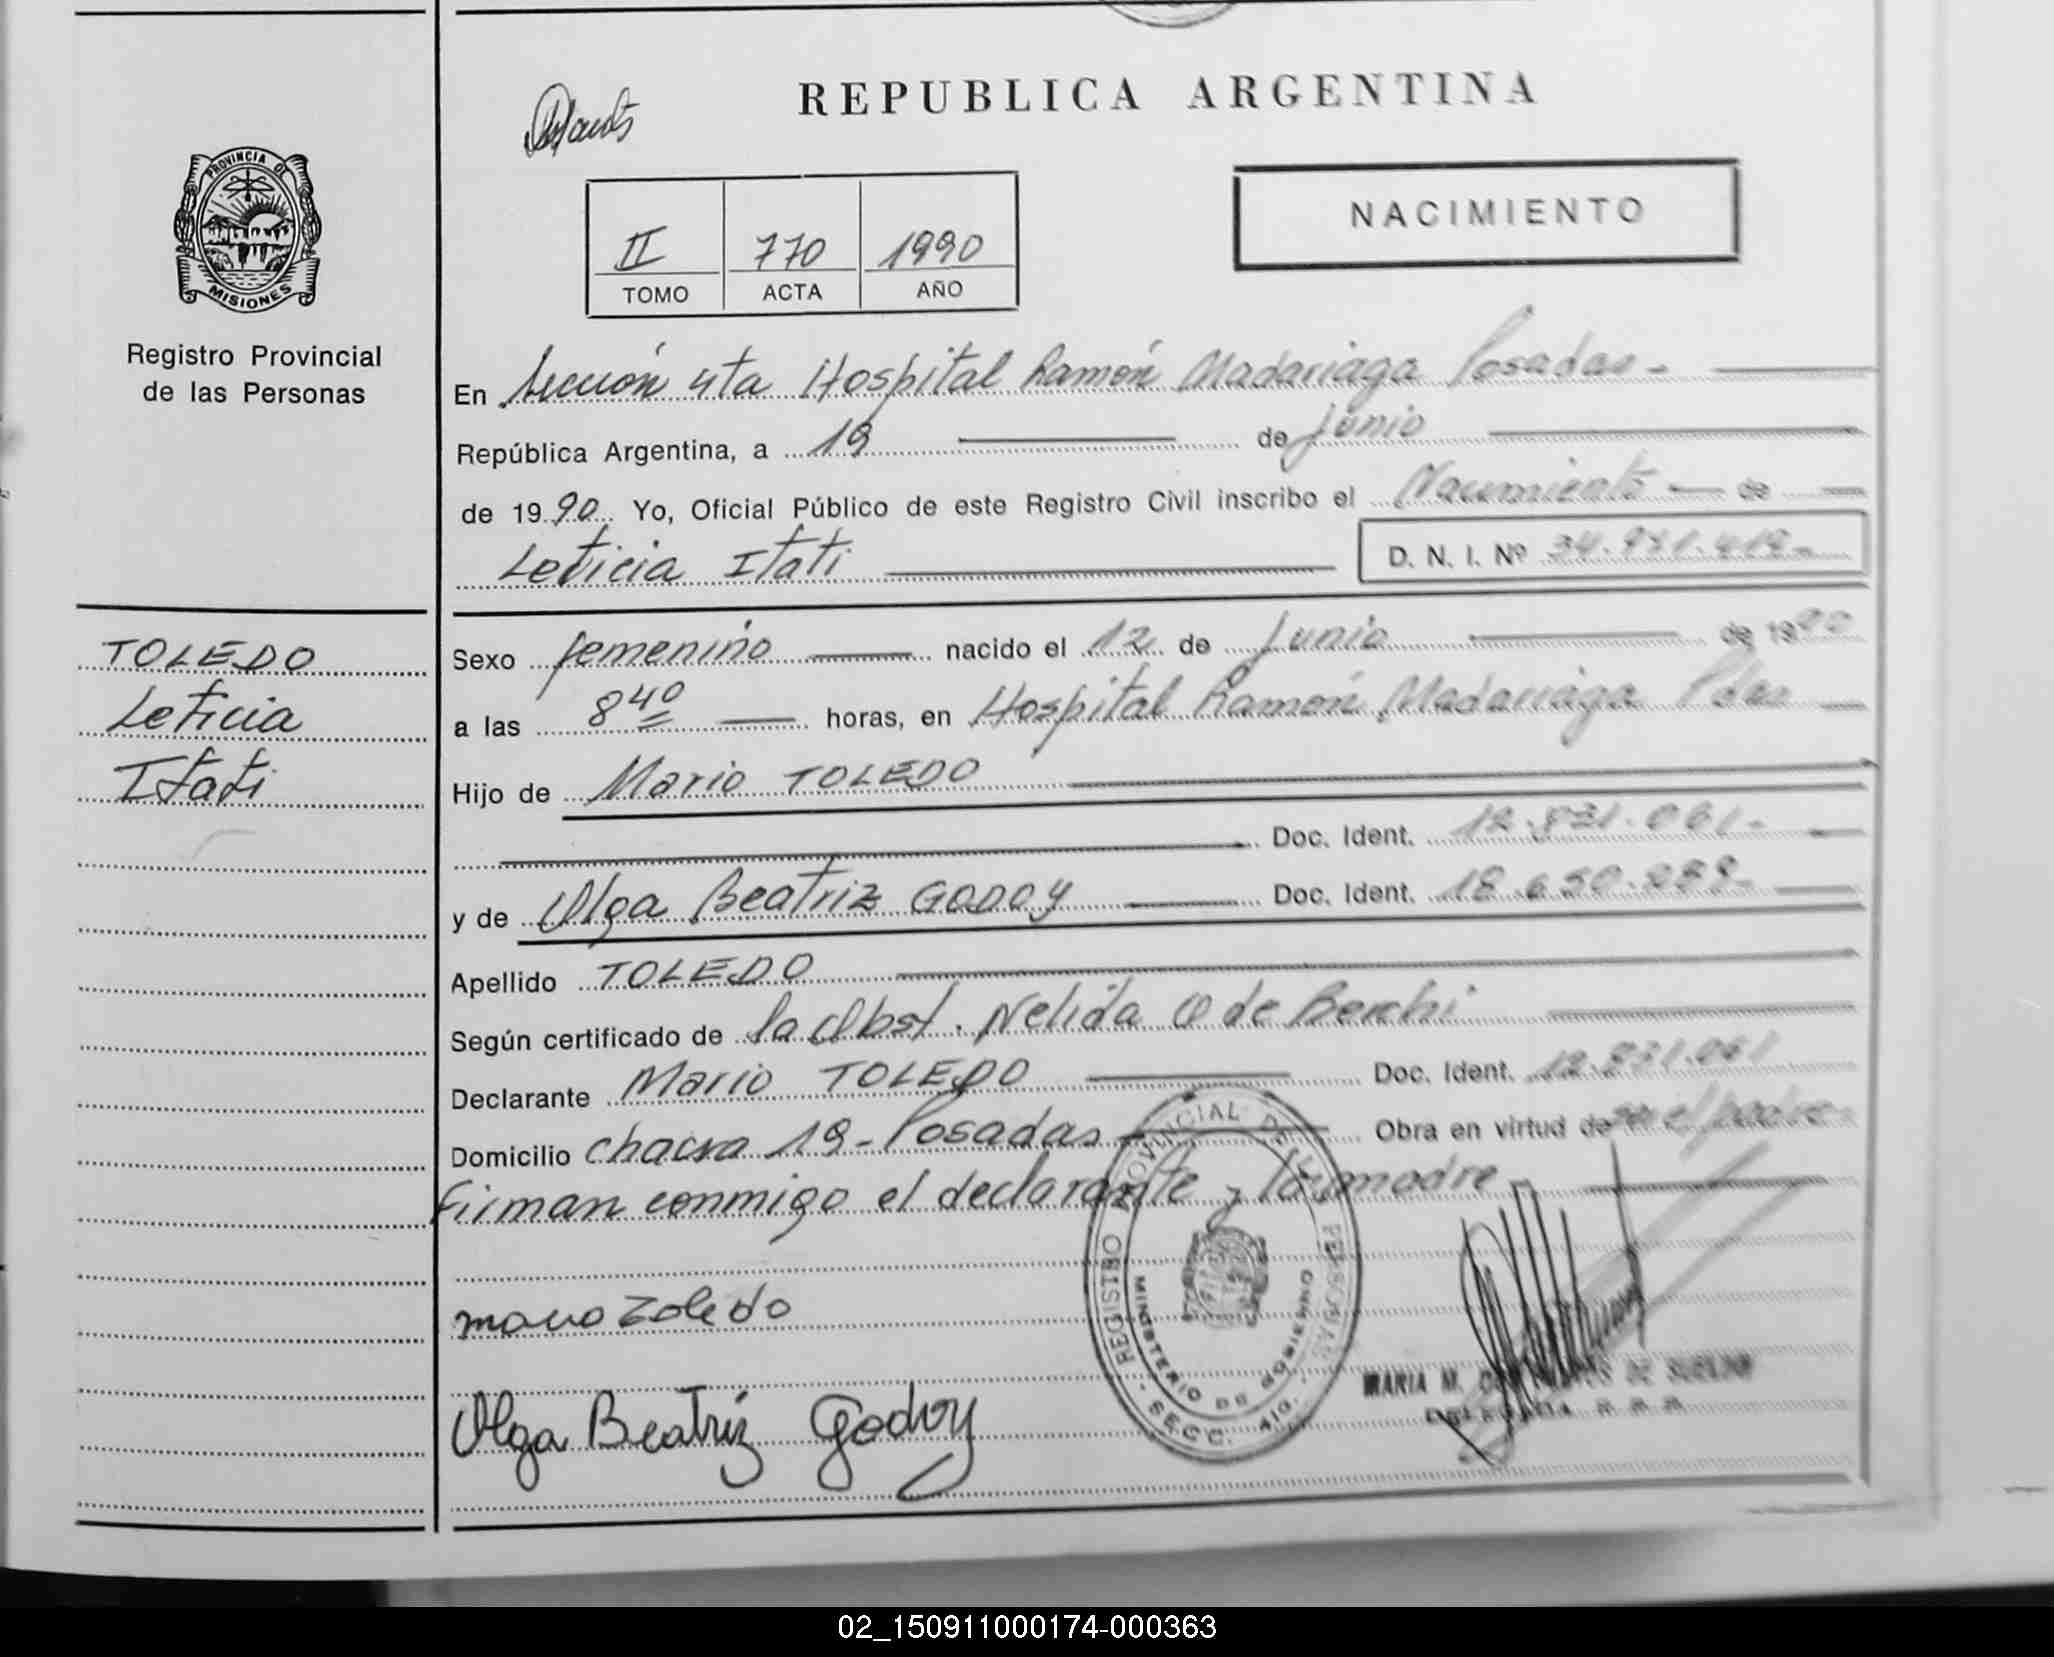 REPUBLICA ARGENTINA
PROVINCIA DE
MISIONES
Registro Provincial
de las Personas
NACIMIENTO
II 770 1990
TOMO ACTA AÑO
En Sección 4ta Hospital Ramón Madariaga Posadas -
República Argentina, a 19 de junio
de 1990. Yo, Oficial Público de este Registro Civil inscribo el Nacimiento de
Leticia Itati D. N. I. Nº
TOLEDO
Leticia
Itati
Sexo femenino nacido el 12 de junio de 1990
a las 8 40 horas, en Hospital Ramón Madariaga Pdas
Hijo de Mario TOLEDO
Doc. Ident. 12.831.061-
y de Olga Beatriz GODOY Doc. Ident.
Apellido TOLEDO
Según certificado de la Obst. Nelida O de Berchi
Declarante Mario TOLEDO Doc. Ident. 12.831.061
Domicilio chacra 19- Posadas Obra en virtud de el padre
firman conmigo el declarante y la madre
REGISTRO PROVINCIAL DE LAS PERSONAS
MINISTERIO DE GOBIERNO
SECC. 4ta.
mario Toledo
MARIA M. DE
Olga Beatriz Godoy
02_150911000174-000363